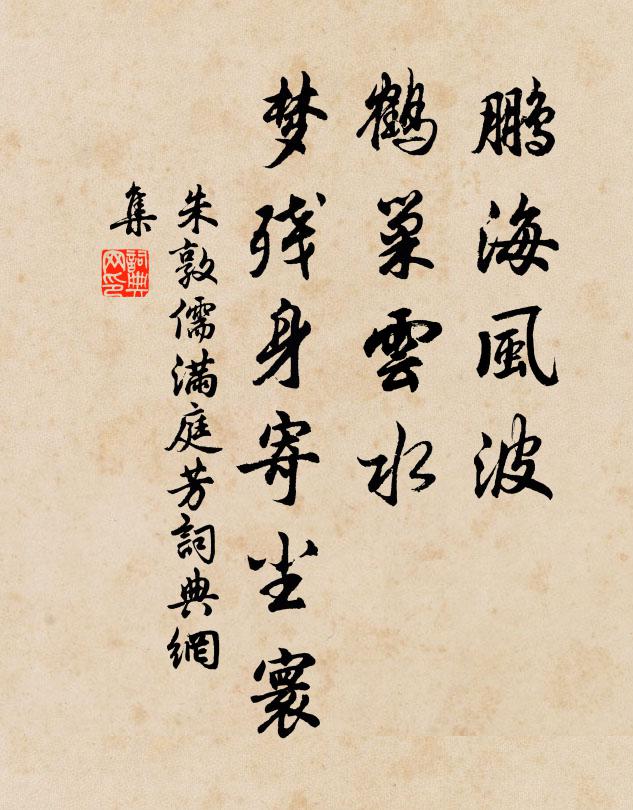 鹏海風波
鶴巢雲水
梦残身寄尘寰
朱敦儒满庭芳詞典網
集
詞典
网印